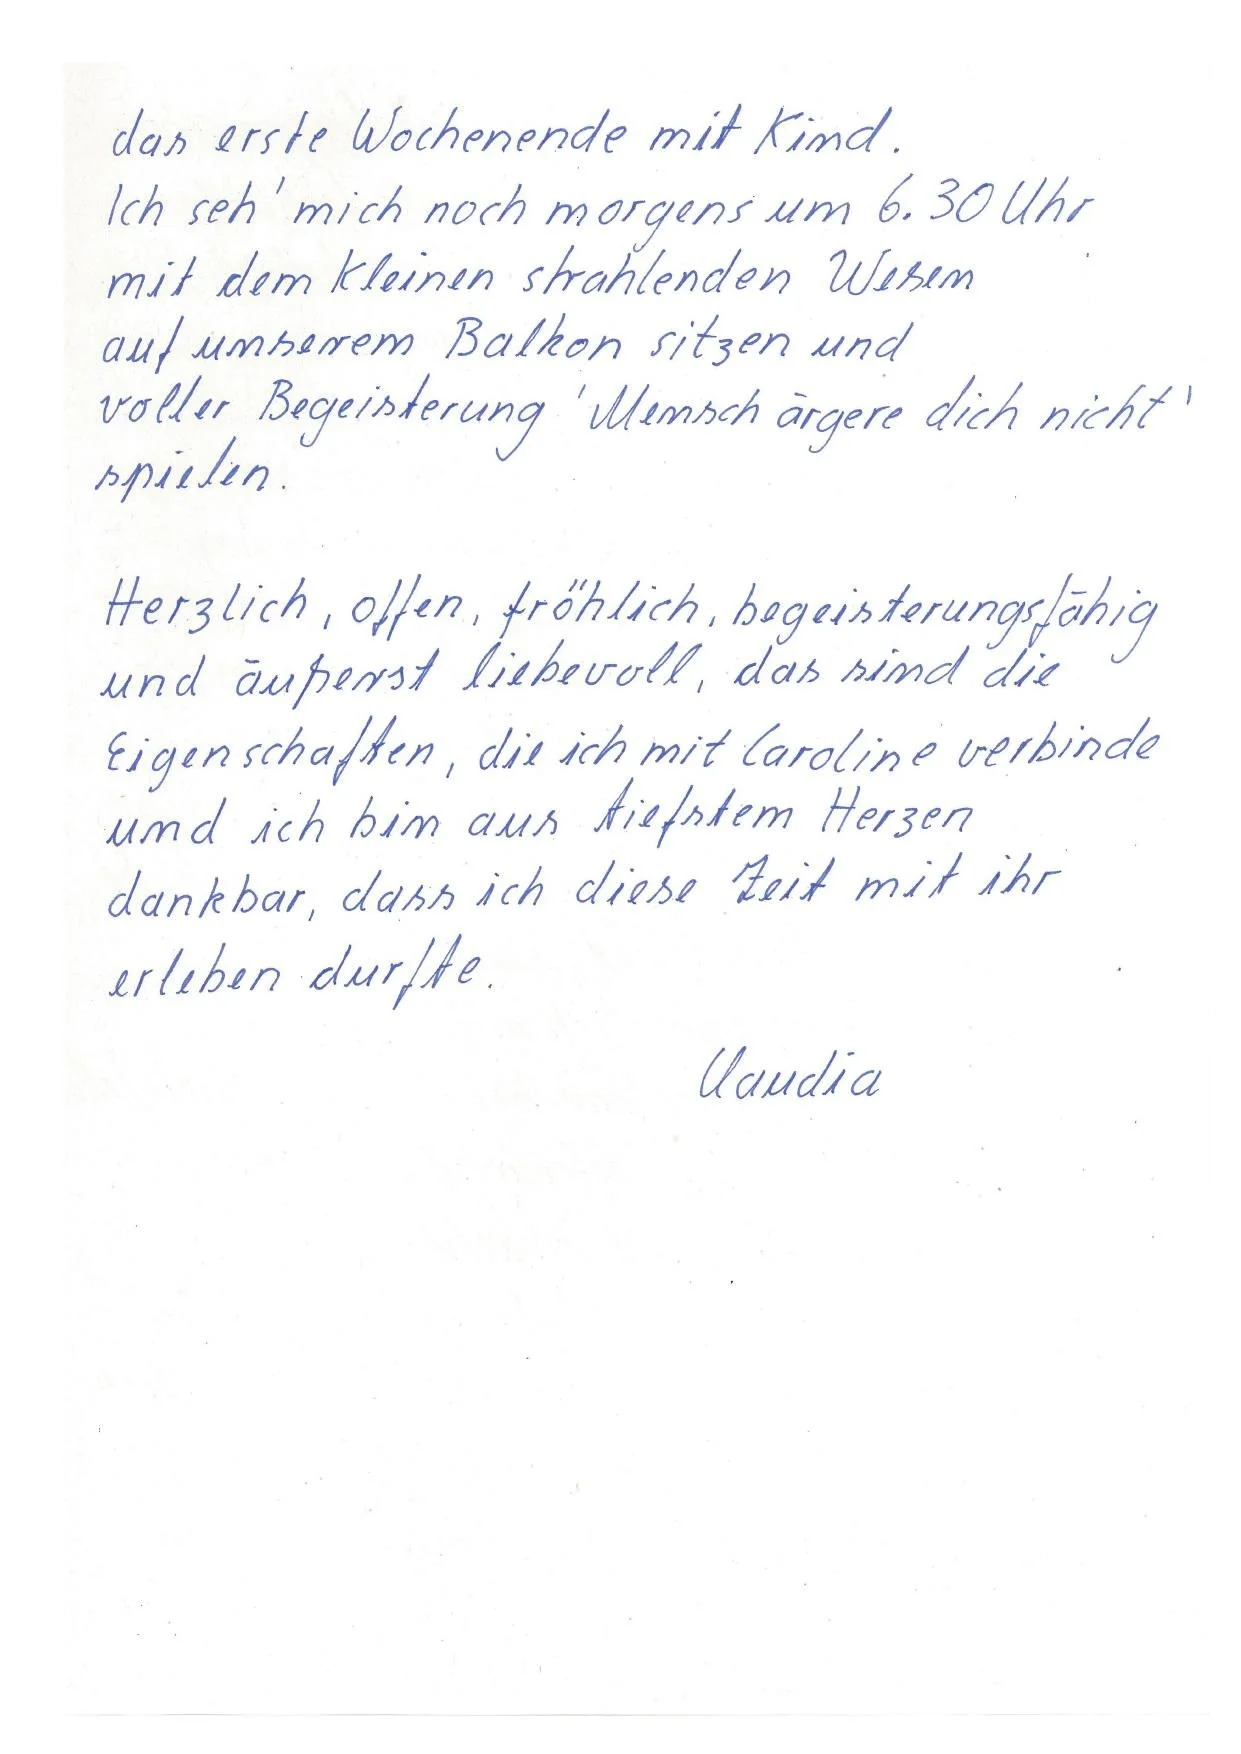 das erste Wochenende mit Kind.
Ich seh' mich noch morgens um 6.30 Uhr
mit dem kleinen strahlenden Wesen
auf unserem Balkon sitzen und
voller Begeisterung 'Mensch ärgere dich nicht'
spielen.
Herzlich, offen, fröhlich, begeisterungsfähig
und äußerst liebevoll, das sind die
Eigenschaften, die ich mit Caroline verbinde
und ich bin aus tiefstem Herzen
dankbar, dass ich diese Zeit mit ihr
erleben durfte.
Claudia